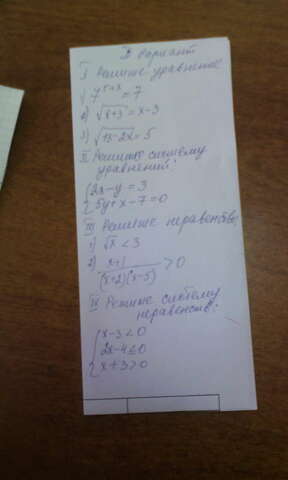 II вариант
I Решите уравнение
1) 7^(5+x) = 7
2) √(x+3) = x-3
3) √(13-2x) = 5
II Решите систему
уравнений:
{ 2x-y = 3
5y+x-7=0
III Решите неравенство
1) √x < 3
2) (x+1)/((x+2)(x-5)) > 0
IV Решите систему
неравенств:
{ x-3<0
2x-4≤0
x+3>0